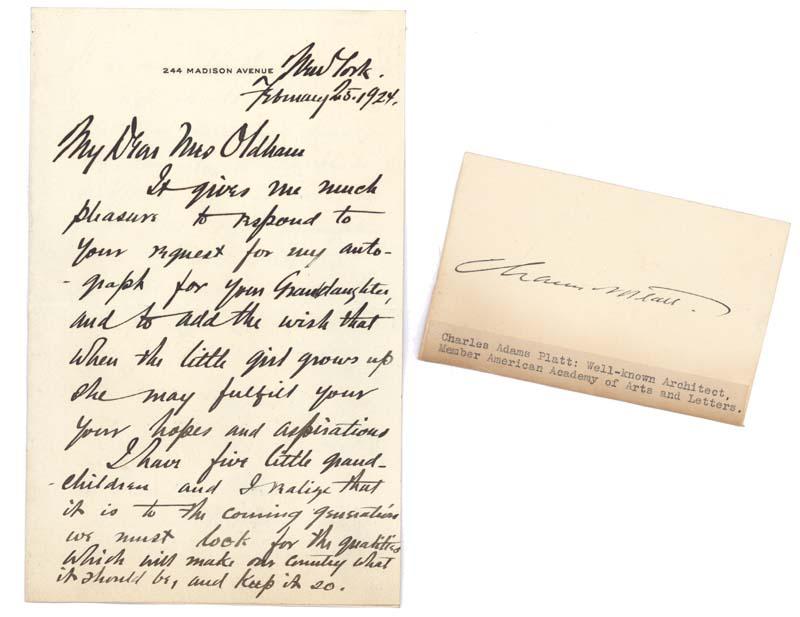 244 MADISON AVENUE New York.
February 25. 1924.
My Dear Mrs Oldham
It gives me much
pleasure to respond to
your request for my auto-
-graph for your Granddaughter,
and to add the wish that
when the little girl grows up
she may fulfill your
your hopes and aspirations
I have five little grand-
-children and I realize that
it is to the coming generation
we must look for the qualities
which will make our country what
it should be, and keep it so.
Charles A Platt.
Charles Adams Platt: Well-known Architect,
Member American Academy of Arts and Letters.